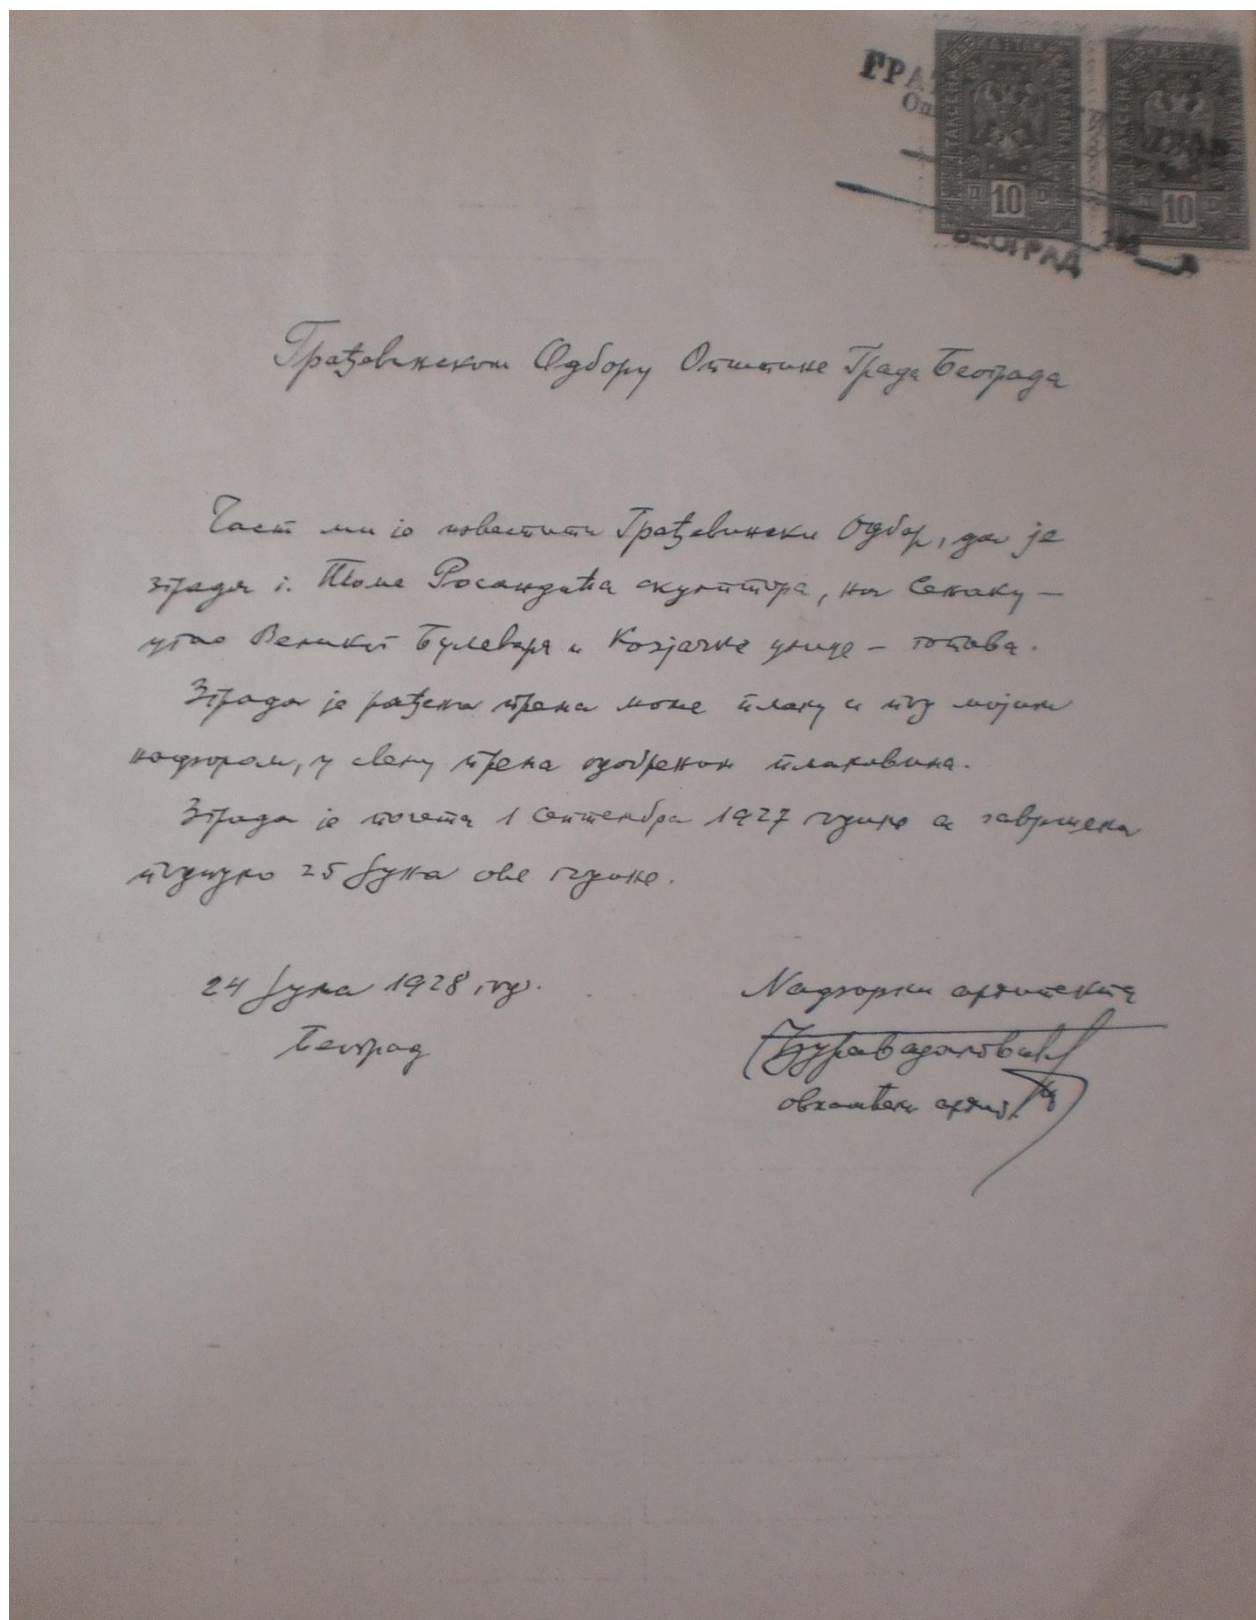 ГРА
Оп
10 10
БЕОГРАД
Грађевинском Одбору Општине Града Београда
Част ми је известити Грађевински Одбор, да је
зграда г. Томе Росандића скулптора, на Сењаку –
угао Великог Булевара и Козјачке улице – готова.
Зграда је рађена према моме плану и под мојим
надзором, у свему према одобреном плановима.
Зграда је почета 1 септембра 1927 године а завршена
потпуно 25 Јуна ове године.
24 Јуна 1928 год.
Београд
Надзорни архитекта
овлашћени архит.